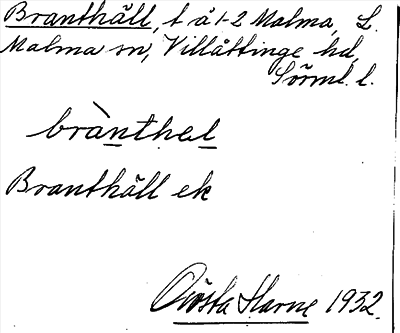 Branthäll, t å 1-2 Malma, L.
Malma sn, Villåttinge hd,
Sörml. l.
brànthal
Branthäll ek
Gösta Harne 1932.